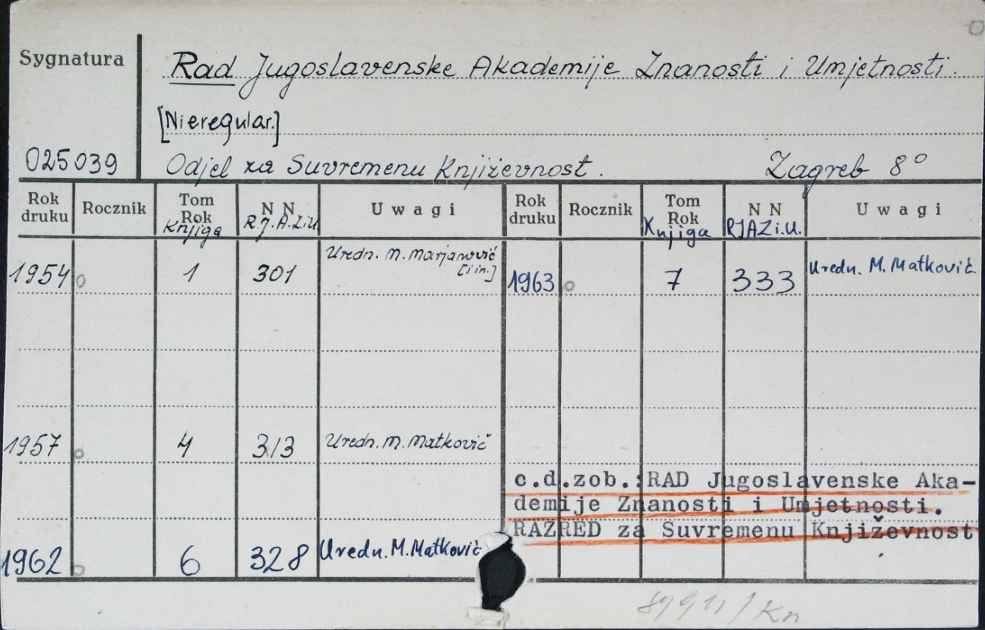 Sygnatura
Rad Jugoslavenske Akademije Znanosti i Umjetnosti.
[Nieregular.]
025039 Odjel za Suvremenu Književnost. Zagreb 8°
Rok druku Rocznik Tom Rok Knjiga N N R.J.A.Z.i.U. Uwagi Rok druku Rocznik Tom Rok Knjiga N N RJAZi.U. Uwagi
1954 1 301 Uredn. M. Marjanović [i in.] 1963 7 333 Uredn. M. Matković
1957 4 313 Uredn. M. Matković
c.d.zob.:RAD Jugoslavenske Aka-
demije Znanosti i Umjetnosti.
RAZRED za Suvremenu Književnost
1962 6 328 Uredn. M. Matković